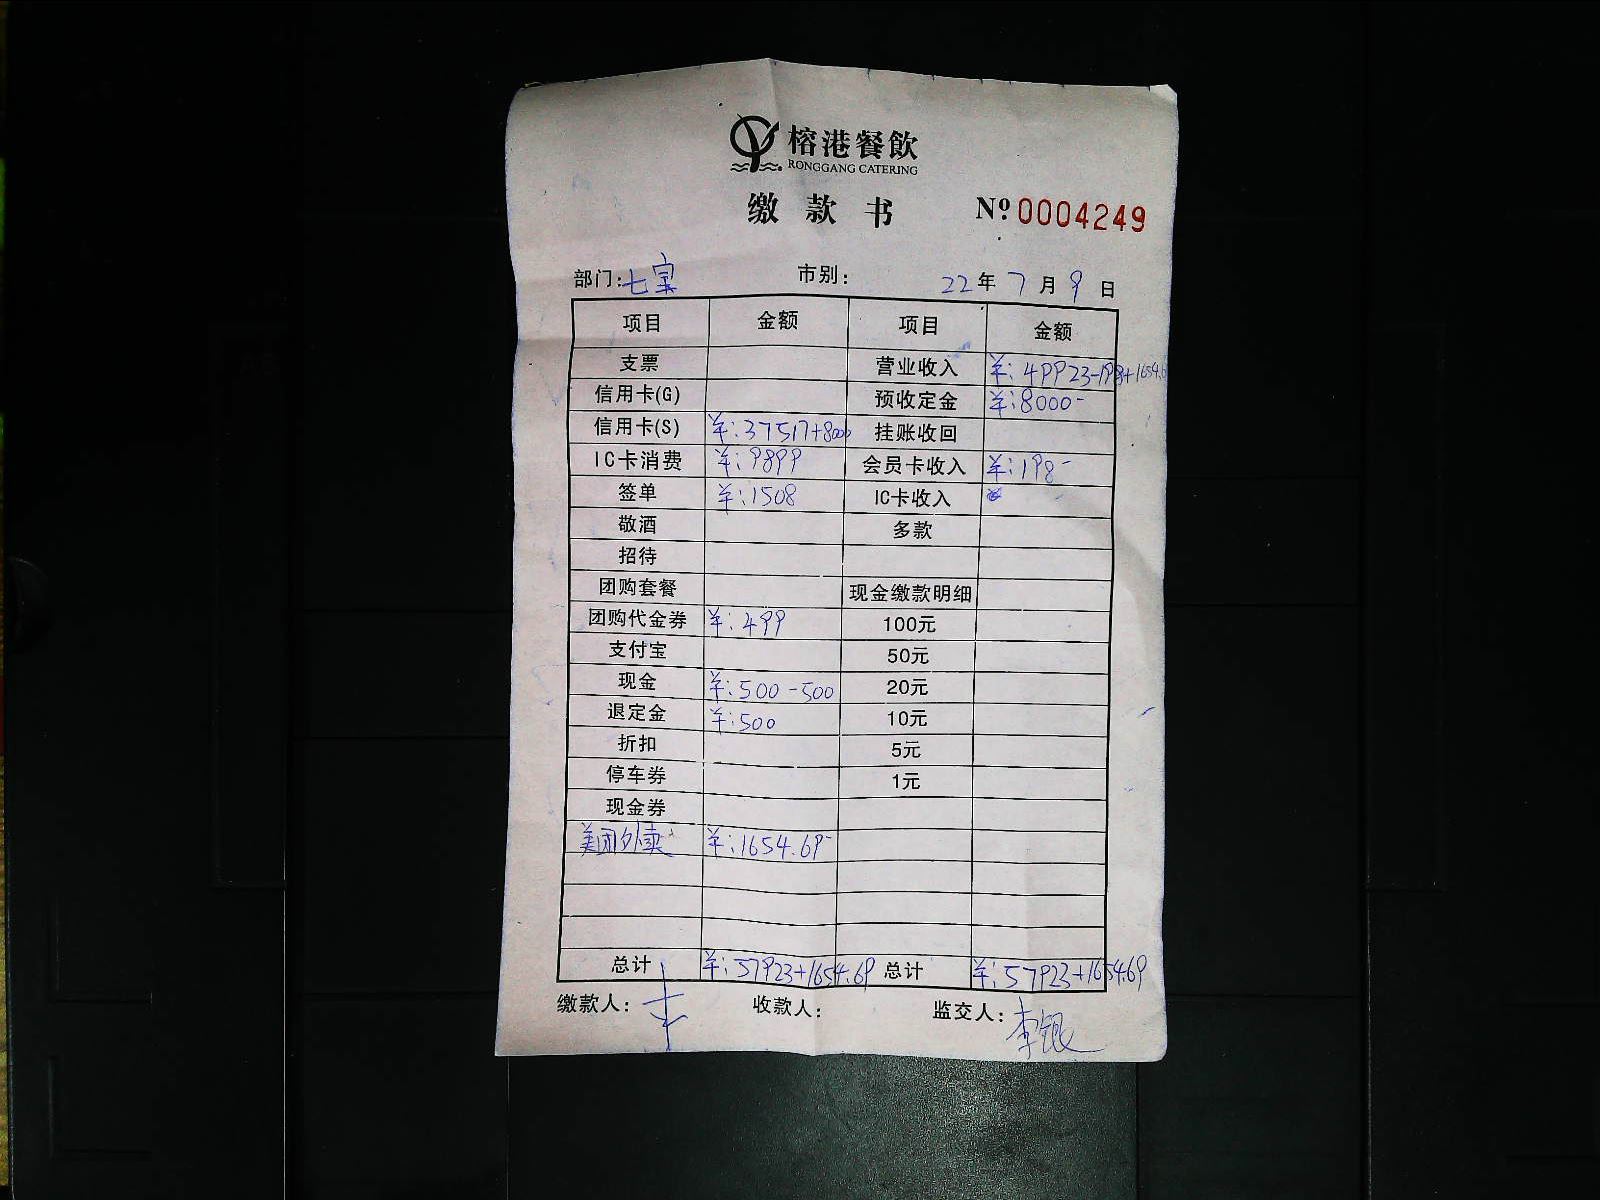 榕港餐飲
RONGGANG CATERING
缴款书 №0004249
部门:七宝 市别: 22年7月9日
项目 金额 项目 金额
支票 营业收入 ¥:49923-198+1654.6
信用卡(G) 预收定金 ¥:8000-
信用卡(S) ¥:37517+8000 挂账收回
IC卡消费 ¥:9899 会员卡收入 ¥:198-
签单 ¥:1508 IC卡收入
敬酒 多款
招待
团购套餐 现金缴款明细
团购代金券 ¥:499 100元
支付宝 50元
现金 ¥:500-500 20元
退定金 ¥:500 10元
折扣 5元
停车券 1元
现金券
美团外卖 ¥:1654.69-
总计 ¥:57923+1654.69 总计 ¥:57923+1654.69
缴款人: 收款人: 监交人:李银